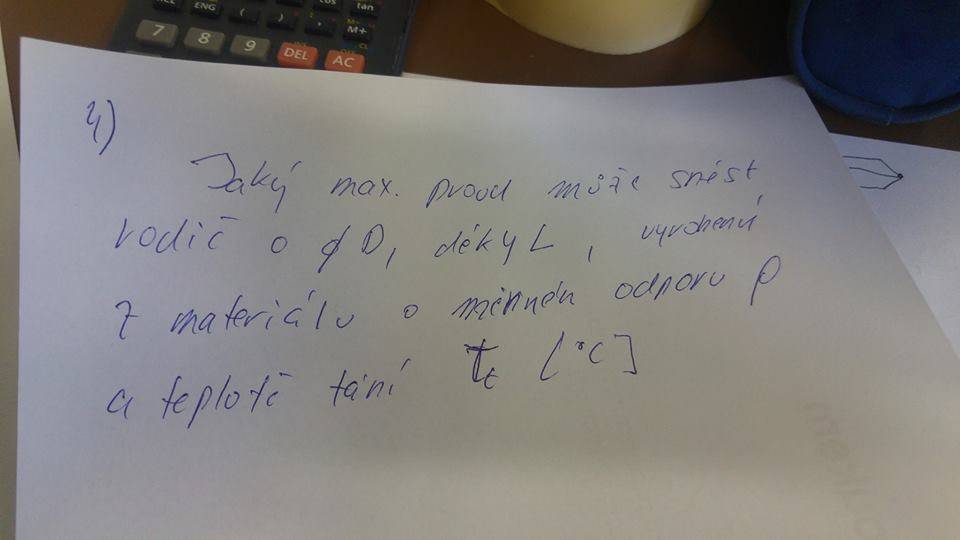 ENG ( ) , cos tan
M+
7 8 9 DEL AC
4)
Jaký max. proud může snést
vodič o ϕD, délky L, vyrobený
z materiálu o měrném odporu ρ
a teplotě tání Tt [°C]